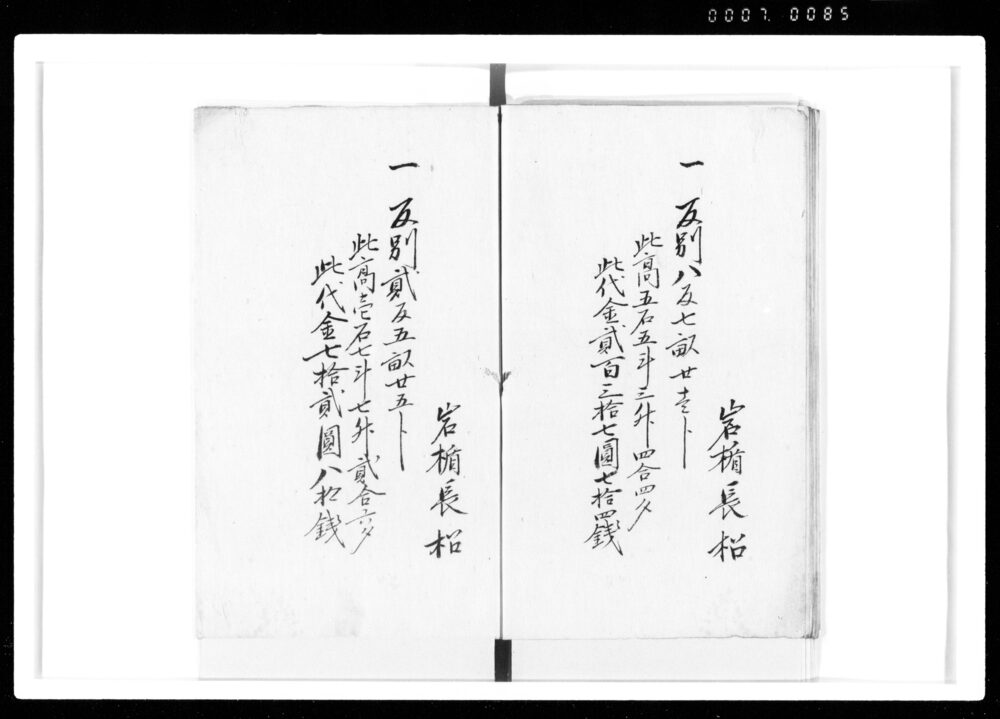 0007. 0085
岩楯長松
一 反別八反七畝廿壱卜
此高五石五斗三升四合四夕
此代金貳百三拾七圓七拾四錢
岩楯長松
一 反別貳反五畝廿五卜
此高壱石七斗七升貳合六夕
此代金七拾貳圓八拾錢